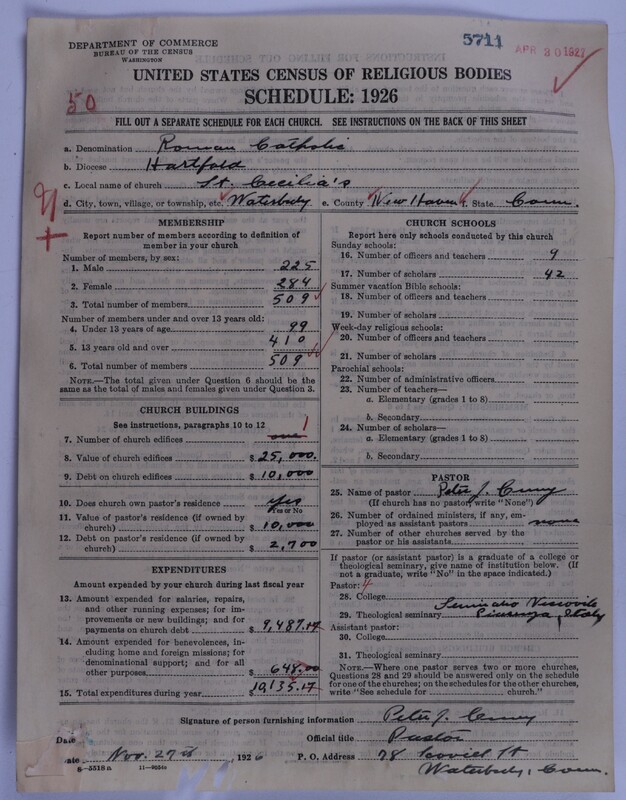 DEPARTMENT OF COMMERCE
BUREAU OF THE CENSUS
WASHINGTON
5711
APR 30 1927
UNITED STATES CENSUS OF RELIGIOUS BODIES
50
SCHEDULE: 1926
FILL OUT A SEPARATE SCHEDULE FOR EACH CHURCH. SEE INSTRUCTIONS ON THE BACK OF THIS SHEET
a. Denomination Roman Catholic
b. Diocese Hartford
c. Local name of church St. Cecilia's
d. City, town, village, or township, etc. Waterbury e. County New Haven f. State Conn.
MEMBERSHIP
Report number of members according to definition of
member in your church
Number of members, by sex:
1. Male 225
2. Female 284
3. Total number of members 509
Number of members under and over 13 years old:
4. Under 13 years of age 99
5. 13 years old and over 410
6. Total number of members 509
NOTE.—The total given under Question 6 should be
same as the total of males and females given under Question 3.
CHURCH BUILDINGS
See instructions, paragraphs 10 to 12
7. Number of church edifices one 1
8. Value of church edifices $25,000.
9. Debt on church edifices $10,000
10. Does church own pastor's residence Yes
Yes or No
11. Value of pastor's residence (if owned by
church) $10,000
12. Debt on pastor's residence (if owned by
church) $2,700
EXPENDITURES
Amount expended by your church during last fiscal year
13. Amount expended for salaries, repairs,
and other running expenses; for im-
provements or new buildings; and for
payments on church debt $9,487.17
14. Amount expended for benevolences, in-
cluding home and foreign missions; for
denominational support; and for all
other purposes $648.00
15. Total expenditures during year $10,135.17
CHURCH SCHOOLS
Report here only schools conducted by this church
Sunday schools:
16. Number of officers and teachers 9
17. Number of scholars 42
Summer vacation Bible schools:
18. Number of officers and teachers
19. Number of scholars
Week-day religious schools:
20. Number of officers and teachers
21. Number of scholars
Parochial schools:
22. Number of administrative officers
23. Number of teachers—
a. Elementary (grades 1 to 8)
b. Secondary
24. Number of scholars—
a. Elementary (grades 1 to 8)
b. Secondary
PASTOR
25. Name of pastor Peter J.
(If church has no pastor, write "None")
26. Number of ordained ministers, if any, em-
ployed as assistant pastors none
27. Number of other churches served by the
pastor or his assistants
If pastor (or assistant pastor) is a graduate of a college or
theological seminary, give name of institution below. (If
not a graduate, write "No" in the space indicated.)
Pastor: 4
28. College
29. Theological seminary Italy
Assistant pastor:
30. College
31. Theological seminary
NOTE.—Where one pastor serves two or more churches,
Questions 28 and 29 should be answered only on the schedule
for one of the churches; on the schedules for the other churches,
write "See schedule for church."
Signature of person furnishing information Peter J.
Official title Pastor
Date Nov. 27th, 1926 P. O. Address 78 Scovill St
8—5518a 11—9034b Waterbury, Conn.